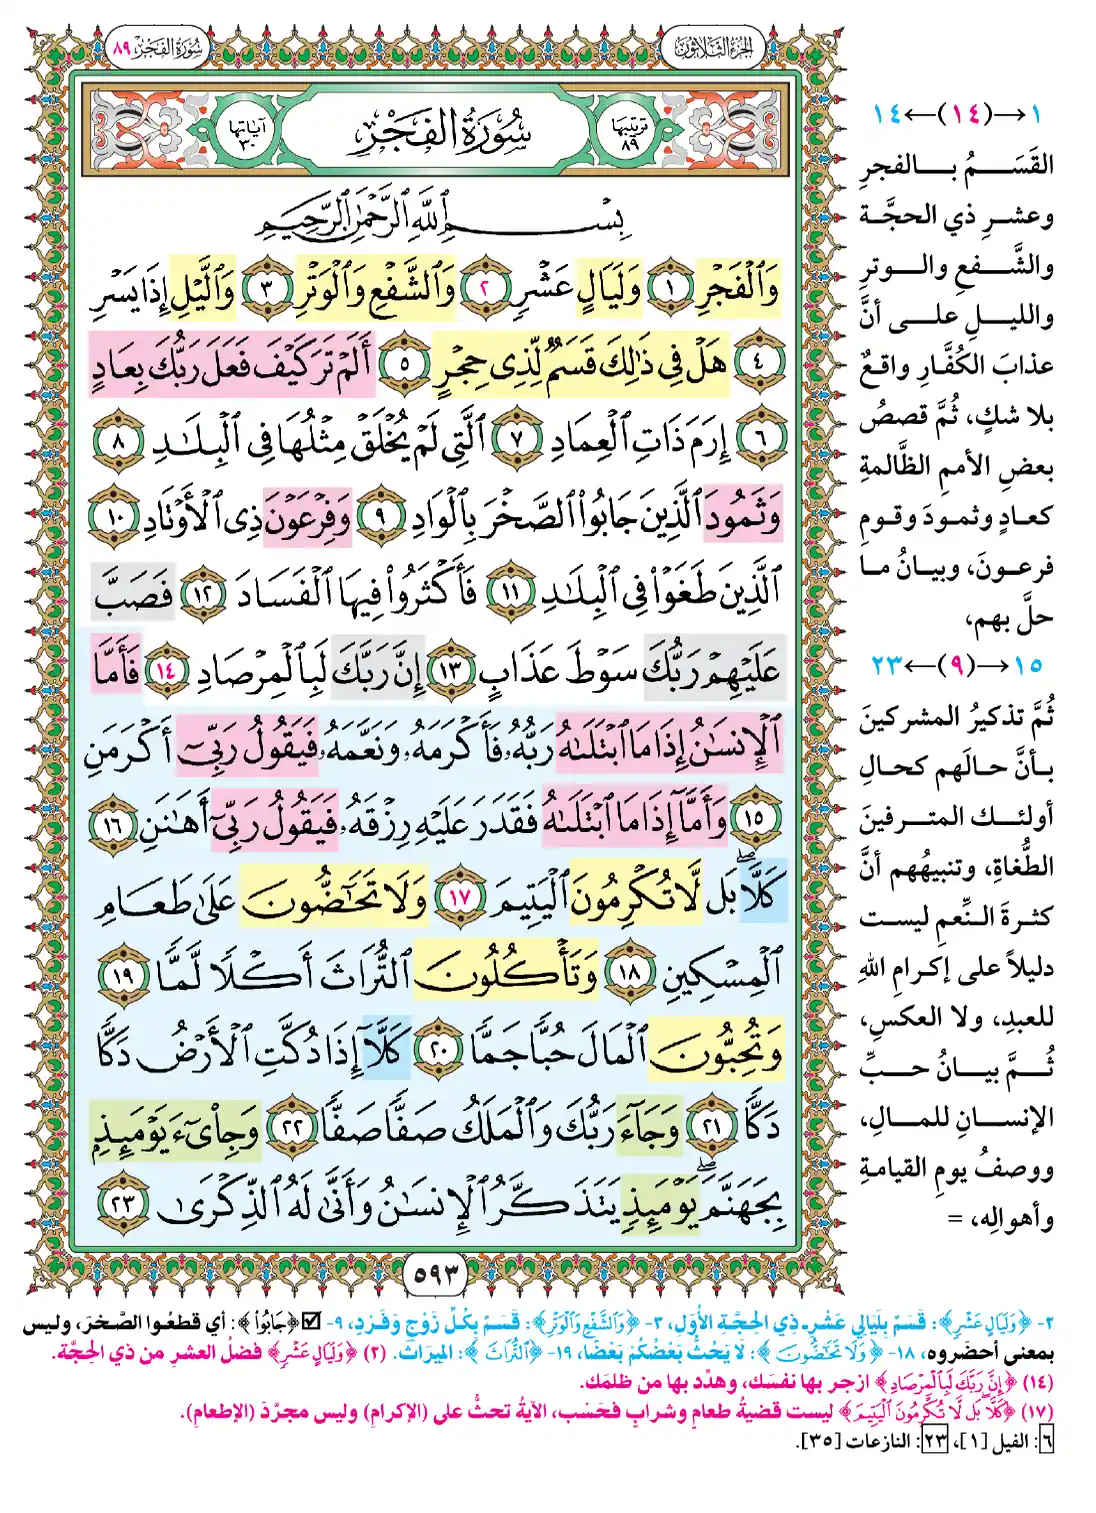 الجزء الثلاثون
سورة الفجر ٨٩
ترتيبها ٨٩
سُورَةُ الفَجْرِ
آياتها ٣٠
بِسْمِ ٱللَّهِ ٱلرَّحْمَٰنِ ٱلرَّحِيمِ
وَٱلْفَجْرِ ١ وَلَيَالٍ عَشْرٍ ٢ وَٱلشَّفْعِ وَٱلْوَتْرِ ٣ وَٱلَّيْلِ إِذَا يَسْرِ
٤ هَلْ فِي ذَٰلِكَ قَسَمٌ لِّذِي حِجْرٍ ٥ أَلَمْ تَرَ كَيْفَ فَعَلَ رَبُّكَ بِعَادٍ
٦ إِرَمَ ذَاتِ ٱلْعِمَادِ ٧ ٱلَّتِي لَمْ يُخْلَقْ مِثْلُهَا فِي ٱلْبِلَٰدِ ٨
وَثَمُودَ ٱلَّذِينَ جَابُوا۟ ٱلصَّخْرَ بِٱلْوَادِ ٩ وَفِرْعَوْنَ ذِي ٱلْأَوْتَادِ ١٠
ٱلَّذِينَ طَغَوْا۟ فِي ٱلْبِلَٰدِ ١١ فَأَكْثَرُوا۟ فِيهَا ٱلْفَسَادَ ١٢ فَصَبَّ
عَلَيْهِمْ رَبُّكَ سَوْطَ عَذَابٍ ١٣ إِنَّ رَبَّكَ لَبِٱلْمِرْصَادِ ١٤ فَأَمَّا
ٱلْإِنسَٰنُ إِذَا مَا ٱبْتَلَىٰهُ رَبُّهُۥ فَأَكْرَمَهُۥ وَنَعَّمَهُۥ فَيَقُولُ رَبِّيٓ أَكْرَمَنِ
١٥ وَأَمَّآ إِذَا مَا ٱبْتَلَىٰهُ فَقَدَرَ عَلَيْهِ رِزْقَهُۥ فَيَقُولُ رَبِّيٓ أَهَٰنَنِ ١٦
كَلَّا ۖ بَل لَّا تُكْرِمُونَ ٱلْيَتِيمَ ١٧ وَلَا تَحَٰٓضُّونَ عَلَىٰ طَعَامِ
ٱلْمِسْكِينِ ١٨ وَتَأْكُلُونَ ٱلتُّرَاثَ أَكْلًا لَّمًّا ١٩
وَتُحِبُّونَ ٱلْمَالَ حُبًّا جَمًّا ٢٠ كَلَّآ إِذَا دُكَّتِ ٱلْأَرْضُ دَكًّا
دَكًّا ٢١ وَجَآءَ رَبُّكَ وَٱلْمَلَكُ صَفًّا صَفًّا ٢٢ وَجِا۟يٓءَ يَوْمَئِذٍۭ
بِجَهَنَّمَ ۚ يَوْمَئِذٍ يَتَذَكَّرُ ٱلْإِنسَٰنُ وَأَنَّىٰ لَهُ ٱلذِّكْرَىٰ ٢٣
٥٩٣
١→(١٤)←١٤
القَسَمُ بالفجرِ
وعشرِ ذي الحجَّة
والشَّفعِ والوترِ
والليلِ على أنَّ
عذابَ الكُفَّارِ واقعٌ
بلا شكٍ، ثُمَّ قصصُ
بعضِ الأممِ الظَّالمةِ
كعادٍ وثمودَ وقومِ
فرعونَ، وبيانُ ما
حلَّ بهم،
١٥→(٩)←٢٣
ثُمَّ تذكيرُ المشركينَ
بأنَّ حالَهم كحالِ
أولئك المترفينَ
الطُّغاةِ، وتنبيهُهم أنَّ
كثرةَ النِّعمِ ليست
دليلاً على إكرامِ اللهِ
للعبدِ، ولا العكسِ،
ثُمَّ بيانُ حبِّ
الإنسانِ للمالِ،
ووصفُ يومِ القيامةِ
وأهوالِه، =
٢- ﴿وَلَيَالٍ عَشْرٍ﴾: قَسَمٌ بِلَيَالِي عَشْرِ ذِي الحِجَّةِ الأُوَلِ، ٣- ﴿وَالشَّفْعِ وَالْوَتْرِ﴾: قَسَمٌ بِكُلِّ زَوْجٍ وَفَرْدٍ، ٩- ☑ ﴿جَابُوا﴾: أي قطعُوا الصَّخرَ، وليس
بمعنى أحضَروه، ١٨- ﴿وَلَا تَحَاضُّونَ﴾: لا يَحُثُّ بَعْضُكُمْ بَعْضًا، ١٩- ﴿التُّرَاثَ﴾: الميرَاثَ. (٢) ﴿وَلَيَالٍ عَشْرٍ﴾ فضلُ العشرِ من ذي الحِجَّة.
(١٤) ﴿إِنَّ رَبَّكَ لَبِالْمِرْصَادِ﴾ ازجر بها نفسَك، وهدِّد بها من ظلمَك.
(١٧) ﴿كَلَّا ۖ بَل لَّا تُكْرِمُونَ الْيَتِيمَ﴾ ليست قضيةُ طعامٍ وشرابٍ فحَسْب، الآيةُ تحثُّ على (الإكرامِ) وليس مجرَّدَ (الإطعامِ).
٦: الفيل [١]، ٢٣: النازعات [٣٥].